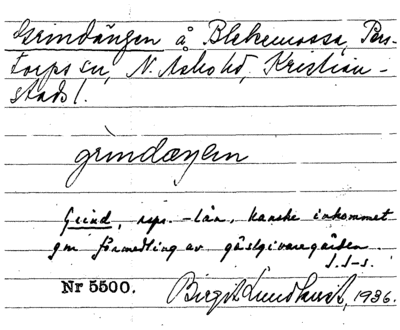 Grindängen å Blekemossa, Pers-
torps sn, N. Asbo hd, Kristian-
stads l.
grindæŋen
Grind, rspr. -lån, kanske inkommet
gm förmedling av gästgivaregården.
J. S-s.
Nr 5500. Birgit Lundkvist, 1936.